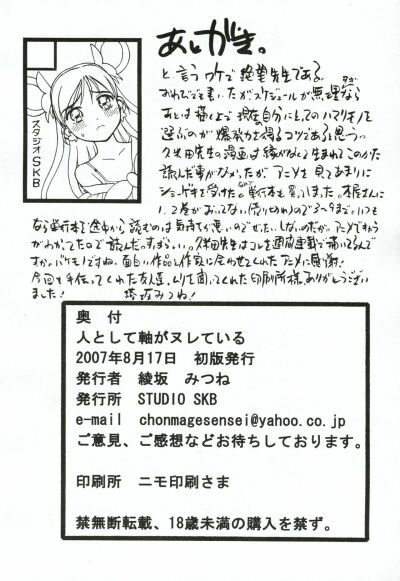 あとがき。
と言うワケで絶望先生である。
おわびでも書いたがスケジュールが無理なら
あとは描く上で現在自分にしてのハマリキノを
選ぶのが爆発力を得るコツであると思う。
久米田先生の漫画は縁がなくて生まれてこのかた
読んだ事がなかったが アニメを見てあまりに
ショーゲキを受けた 単行本を買ってきました。本屋さんに
1、2巻がおいてない(売り切れ)ので3〜9まで。いつも
なら単行本で途中から読むのは気持ちが悪いのでぜったいしないのだが、アニメで
わかってたので読んだ。すばらしい。久米田先生はコレを週刊連載で描いてるんで
すか。バケモノですね。面白い作品と作家に会わせてくれたアニメに感謝!
今回も手伝ってくれた友人達、ムリを聞いてくれた印刷所様、ありがとうござい
ました! 綾坂みつね!
スタジオSKB
奥 付
人として軸がヌレている
2007年8月17日 初版発行
発行者 綾坂 みつね
発行所 STUDIO SKB
e-mail chonmagesensei@yahoo.co.jp
ご意見、ご感想などお待ちしております。
印刷所 ニモ印刷さま
禁無断転載、18歳未満の購入を禁ず。